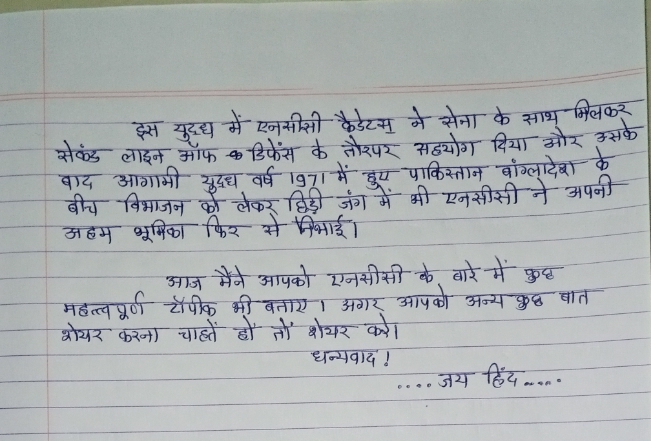 इस युद्ध में एनसीसी कैडेटस् ने सेना के साथ मिलकर
सेकंड लाइन ऑफ डिफेंस के तौरपर सहयोग दिया और उसके
बाद आगामी युद्ध वर्ष 1971 में हुए पाकिस्तान बांग्लादेश के
बीच विभाजन को लेकर छिड़ी जंग में भी एनसीसी ने अपनी
अहम भूमिका फिर से निभाई।
आज मैंने आपको एनसीसी के बारे में कुछ
महत्त्वपूर्ण टॉपीक भी बताए। अगर आपको अन्य कुछ बात
शेयर करना चाहतें हों तों शेयर करे।
धन्यवाद!
.... जय हिंद ....